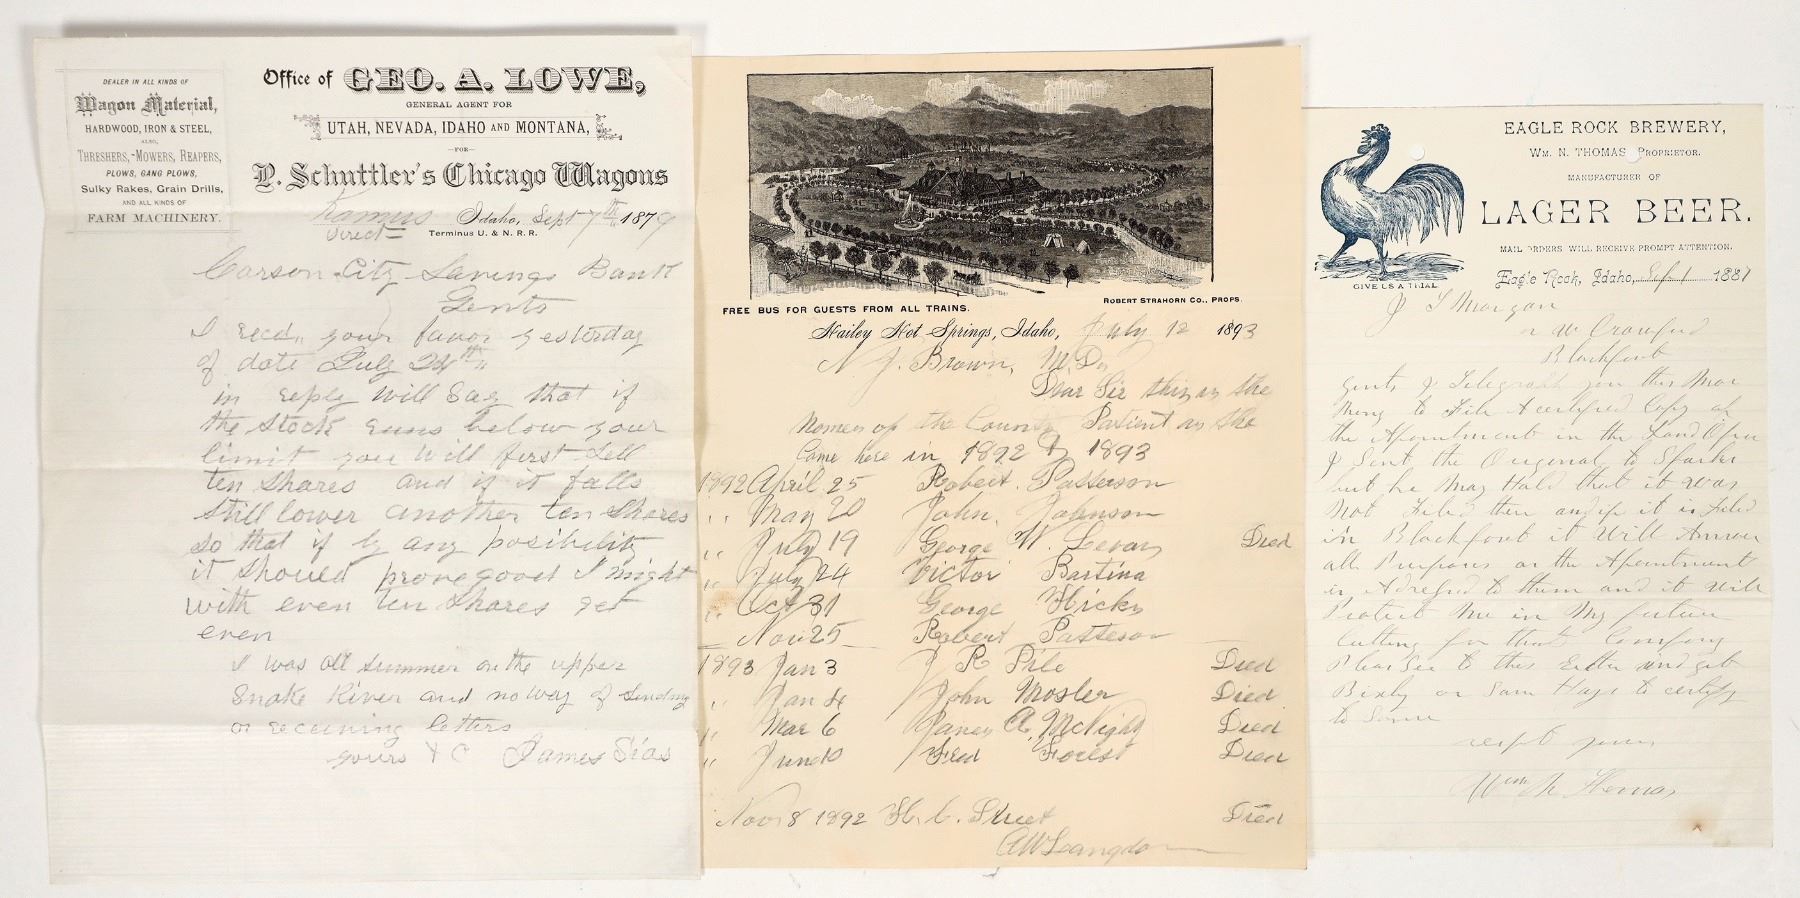 DEALER IN ALL KINDS OF
Wagon Material,
HARDWOOD, IRON & STEEL,
ALSO,
THRESHERS,-MOWERS, REAPERS,
PLOWS, GANG PLOWS,
Sulky Rakes, Grain Drills,
AND ALL KINDS OF
FARM MACHINERY.
Office of GEO. A. LOWE,
GENERAL AGENT FOR
UTAH, NEVADA, IDAHO AND MONTANA,
—FOR—
P. Schuttler's Chicago Wagons
Idaho, Sept 7th 1879
Direct
Terminus U. & N. R. R.
Carson City Savings Bank
Gents
I recd, your favor yesterday
of date July 24th
in reply will Say that if
the Stock runs below your
limit you will first Sell
ten Shares and if it falls
Still lower another ten Shares
So that if by any posibility
it Should prove good I might
with even ten Shares get
even
I was all Summer on the upper
Snake River and no way of Sending
or receiving letters
yours & C James Sias
FREE BUS FOR GUESTS FROM ALL TRAINS.
ROBERT STRAHORN CO., PROPS.
Hailey Hot Springs, Idaho, July 12 1893
N J. Brown, M.D.
Dear Sir this is the
Names of the County Patient as the
Came here in 1892 & 1893
1892 April 25 Robert Patterson
" May 20 John Johnson
" July 19 George W. Levan Died
" July 24 Victor Bartina
" Oct 31 George Hicks
Nov 25 Robert Patteson
1893 Jan 3 J R Pile Died
" Jan 4 John Mosler Died
" Mar 6 A. McNight Died
" June 10 Fred Forest Died
Nov 8 1892 H. C. Street Died
AW Langdon
EAGLE ROCK BREWERY,
WM. N. THOMAS, PROPRIETOR.
MANUFACTURER OF
LAGER BEER.
MAIL ORDERS WILL RECEIVE PROMPT ATTENTION.
GIVE US A TRIAL
Eagle Rock, Idaho, Sept 1 1887
J T Morgan
or W Crawford
Blackfoot
Gents I Telegraph you this Mor
ning to File A certifyed Copy of
the Apointment in the Land Office
I Sent the Original to Sparks
but he May Hold that it was
Not Filed then and if it is Filed
in Blackfoot it Will Answer
all Purposes as the Apointment
is Adressed to them and it will
Protect Me in My future
Cutting for that Company
Please See to this and get
Bixby or Sam Hays to certify
to Same
yours
Wm N Thomas